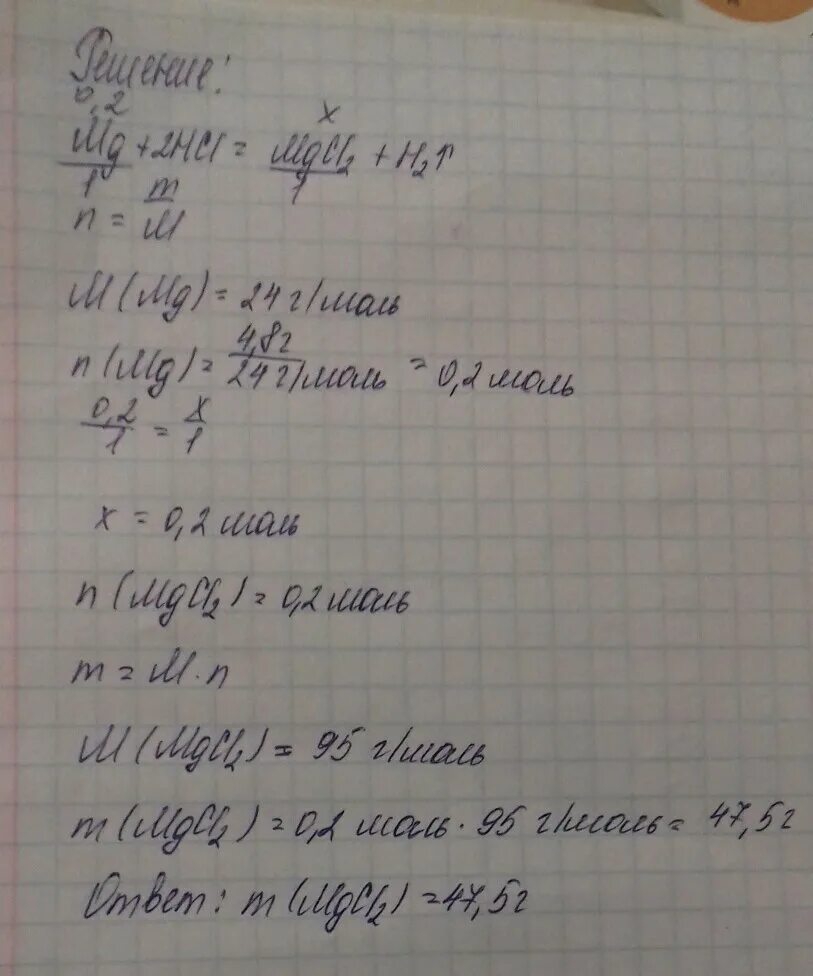 Решение:
0,2 x
Mg + 2HCl = MgCl₂ + H₂↑
1 1
n = m/M
M (Mg) = 24 г/моль
n (Mg) = 4,8г / 24 г/моль = 0,2 моль
0,2/1 = x/1
x = 0,2 моль
n (MgCl₂) = 0,2 моль
m = M · n
M (MgCl₂) = 95 г/моль
m (MgCl₂) = 0,2 моль · 95 г/моль = 47,5г
Ответ: m (MgCl₂) = 47,5г